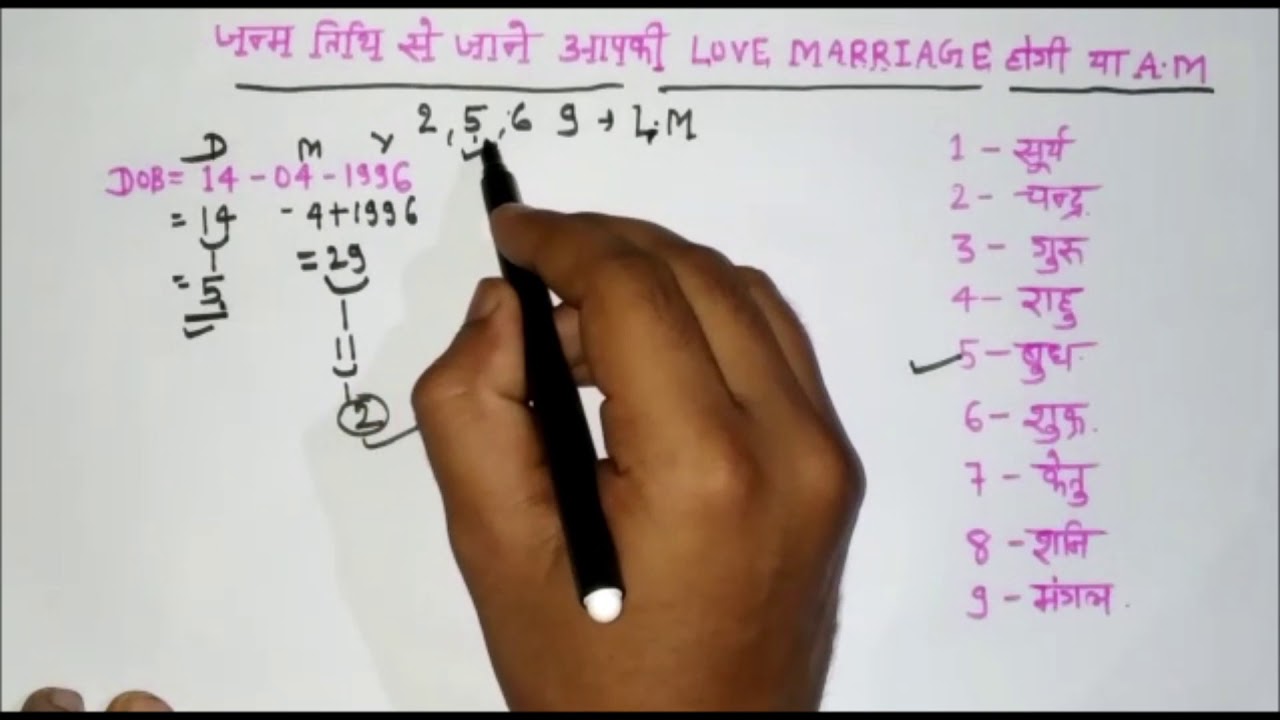 जन्म तिथि से जाने आपकी LOVE MARRIAGE होगी या A.M
2, 5, 6 9 → L.M
D M Y
DOB = 14 - 04 - 1996
= 14 - 4+1996
= 5 = 29
11
2
1 - सूर्य
2 - चन्द्र
3 - गुरु
4 - राहु
5 - बुध
6 - शुक्र
7 - केतु
8 - शनि
9 - मंगल